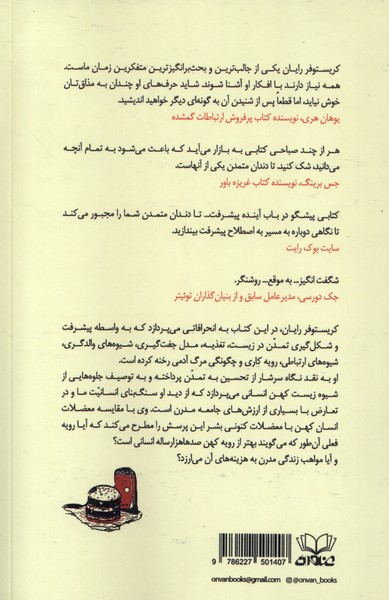 کریستوفر رایان یکی از جالب‌ترین و بحث‌برانگیزترین متفکرین زمان ماست.
همه نیاز دارند با افکار او آشنا شوند. شاید حرف‌های او چندان به مذاق‌تان
خوش نیاید، اما قطعاً پس از شنیدن آن به گونه‌ای دیگر خواهید اندیشید.
یوهان هری، نویسنده کتاب پرفروش ارتباطات گمشده
هر از چند صباحی کتابی به بازار می‌آید که باعث می‌شود به تمام آنچه
می‌دانید، شک کنید. تا دندان متمدن یکی از آنهاست.
جس برینگ، نویسنده کتاب غریزه باور
کتابی پیشگو در باب آینده پیشرفت... تا دندان متمدن شما را مجبور می‌کند
تا نگاهی دوباره به مسیر به اصطلاح پیشرفت بیندازید.
سایت بوک رایت
شگفت انگیز... به موقع... روشنگر.
جک دورسی، مدیرعامل سابق و از بنیان‌گذاران توئیتر
کریستوفر رایان، در این کتاب به انحرافاتی می‌پردازد که به واسطه پیشرفت
و شکل‌گیری تمدّن در زیست، تغذیه، مدل جفت‌گیری، شیوه‌های والدگری،
شیوه‌های ارتباطی، رویه کاری و چگونگی مرگ آدمی رخنه کرده است.
او به نقد نگاه سرشار از تحسین به تمدّن پرداخته و به توصیف جلوه‌هایی از
شیوه زیست کهن انسانی می‌پردازد که از دید او سنگ‌بنای انسانیّت ما و در
تعارض با بسیاری از ارزش‌های جامعه مدرن است. وی با مقایسه معضلات
انسان کهن با معضلات کنونی بشر این پرسش را مطرح می‌کند که آیا رویه
فعلی آن‌طور که می‌گویند بهتر از رویه کهن صدهاهزارساله انسانی است؟
و آیا مواهب زندگی مدرن به هزینه‌های آن می‌ارزد؟
9 786227 501407
onvanbooks@gmail.com @onvan_books
عنوان